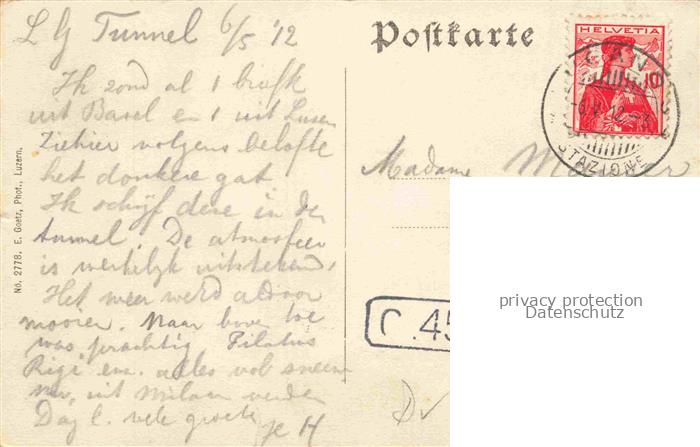 L G Tunnel 6/5 '12
Ik zond al 1 briefk
uit Basel en 1 uit Luzern
Ziehier volgens belofte
het donkere gat
Ik schijf deze in de
tunnel. De atmosfeer
is werkelijk uitstekend,
Het weer werd aldoor
mooier. Naar boven toe
was prachtig Pilatus
Rigi enz. alles vol sneeuw
nu, uit Milaan verder
Dag l. vele groete
je H
No. 2778. E. Goetz, Phot., Luzern.
Postkarte
HELVETIA
10
STAZIONE
Madame
C.45
privacy protection
Datenschutz